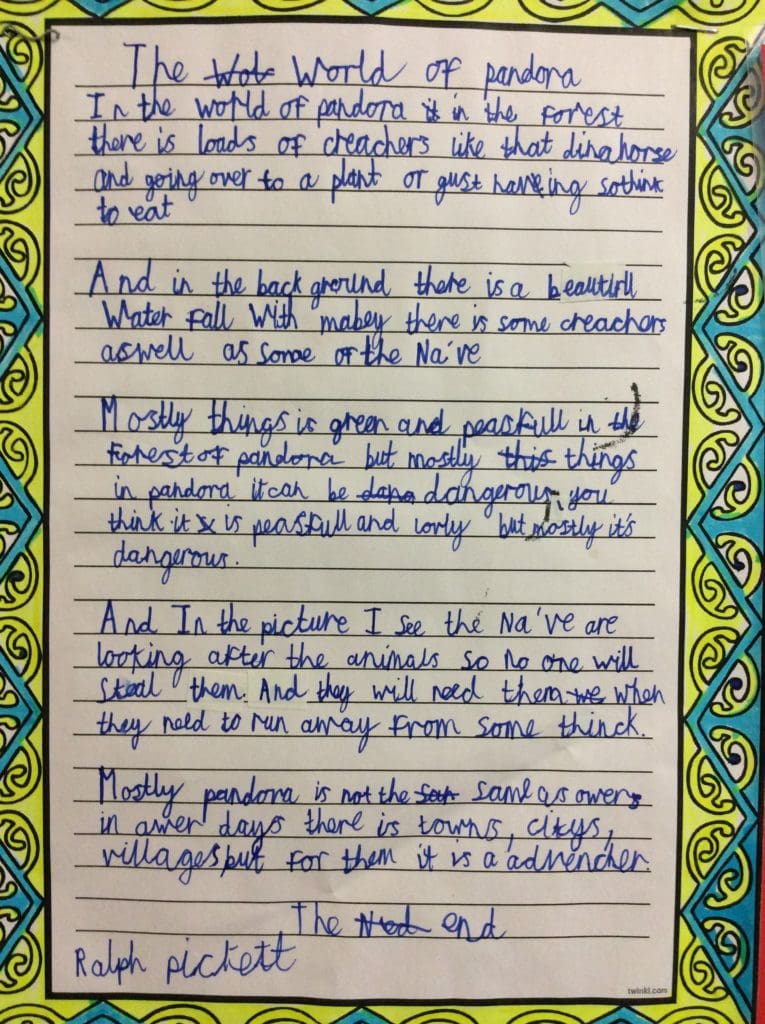 The Wob World of pandora
In the world of pandora it in the forest
there is loads of creachers like that dinahorse
and going over to a plant or gust haveing sothink
to eat
And in the back ground there is a beautirll
Water fall With mabey there is some creachers
aswell as some of the Na've
Mostly things is green and peasfull in the
forest of pandora but mostly this things
in pandora it can be dana dangerous, you
think it is peasfull and lovly but mostly it's
dangerous.
And In the picture I see the Na've are
looking after the animals so no one will
steal them. And they will need them we when
they need to run away from some thinck.
Mostly pandora is not the sam same as owers
in awer days there is towns, citys,
villages, but for them it is a advencher.
The end
Ralph pickett
twinkl.com